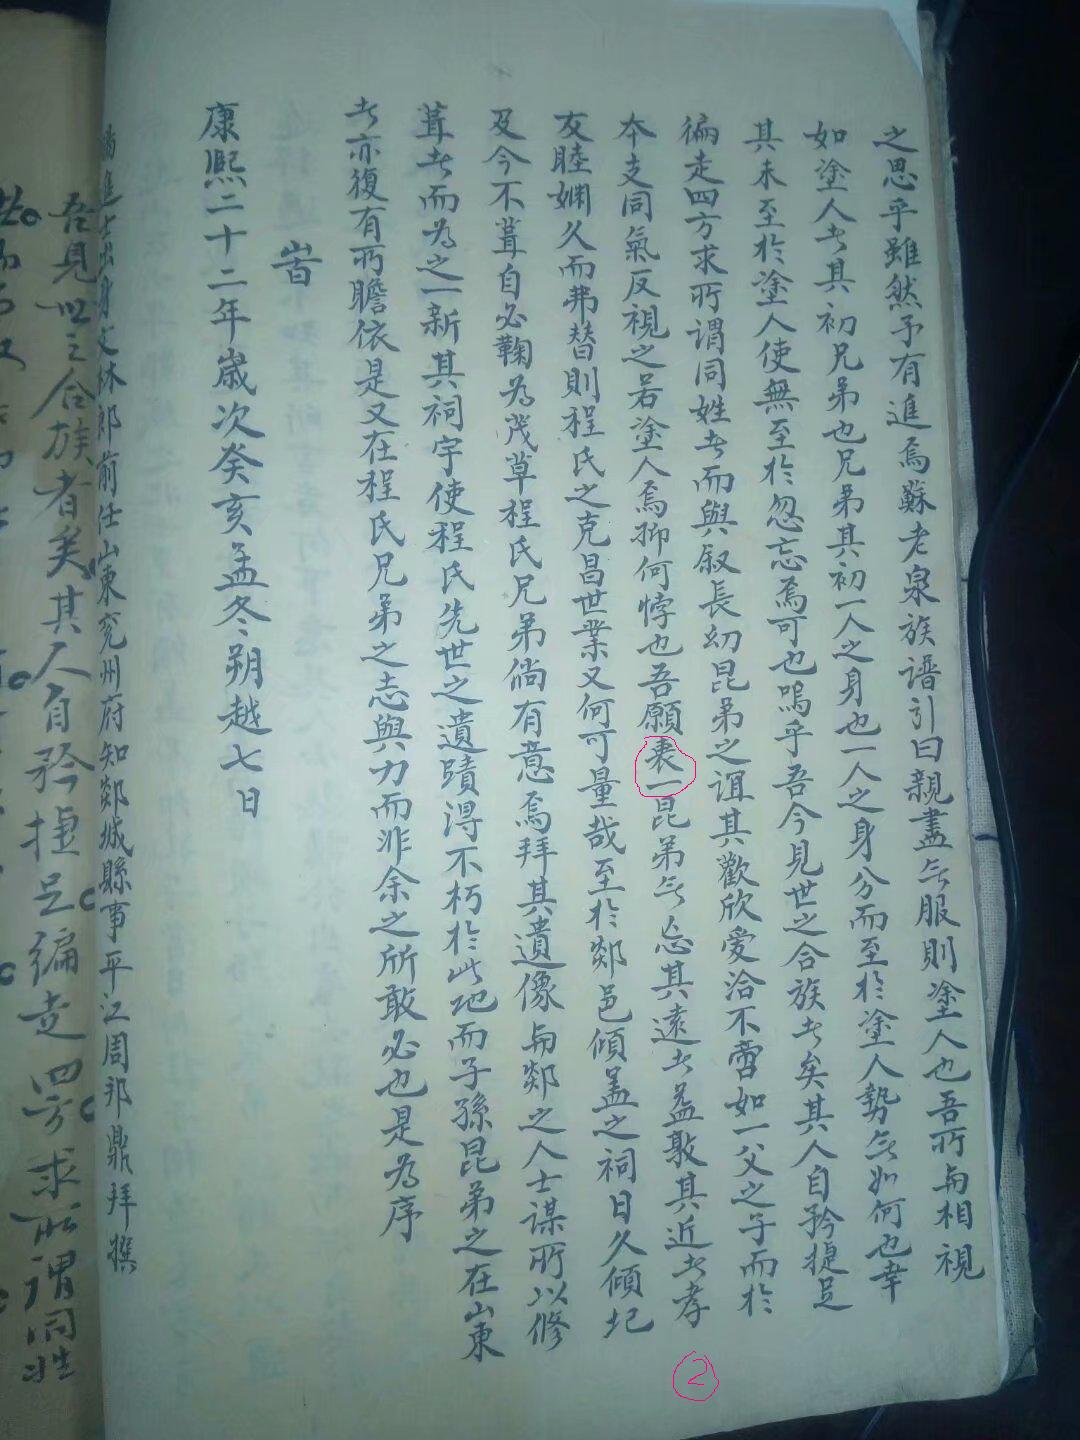 之思乎雖然予有進焉蘇老泉族譜引曰親盡无服則塗人也吾所與相視
如塗人者其初兄弟也兄弟其初一人之身也一人之身分而至於塗人勢无如何也幸
其未至於塗人使無至於忽忘焉可也嗚乎吾今見世之合族者矣其人自矜捷足
徧走四方求所謂同姓者而與叙長幼昆弟之誼其歡欣愛洽不啻如一父之子而於
本支同氣反視之若塗人焉抑何悖也吾願裒一昆弟无忘其遠者益敦其近者孝
友睦婣久而弗替則程氏之克昌世業又何可量哉至於郯邑傾盖之祠日久傾圮
及今不葺自必鞠為茂草程氏兄弟倘有意焉拜其遺像與郯之人士謀所以修
葺者而為之一新其祠宇使程氏先世之遺蹟得不朽於此地而子孫昆弟之在山東
者亦復有所瞻依是又在程氏兄弟之志與力而非余之所敢必也是為序
旹
康熙二十二年歲次癸亥孟冬朔越七日
進士出身文林郎前任山東兗州府知郯城縣事平江周邦鼎拜撰
吾見世之合族者矣其人自矜捷足編走四方求所謂同姓
②